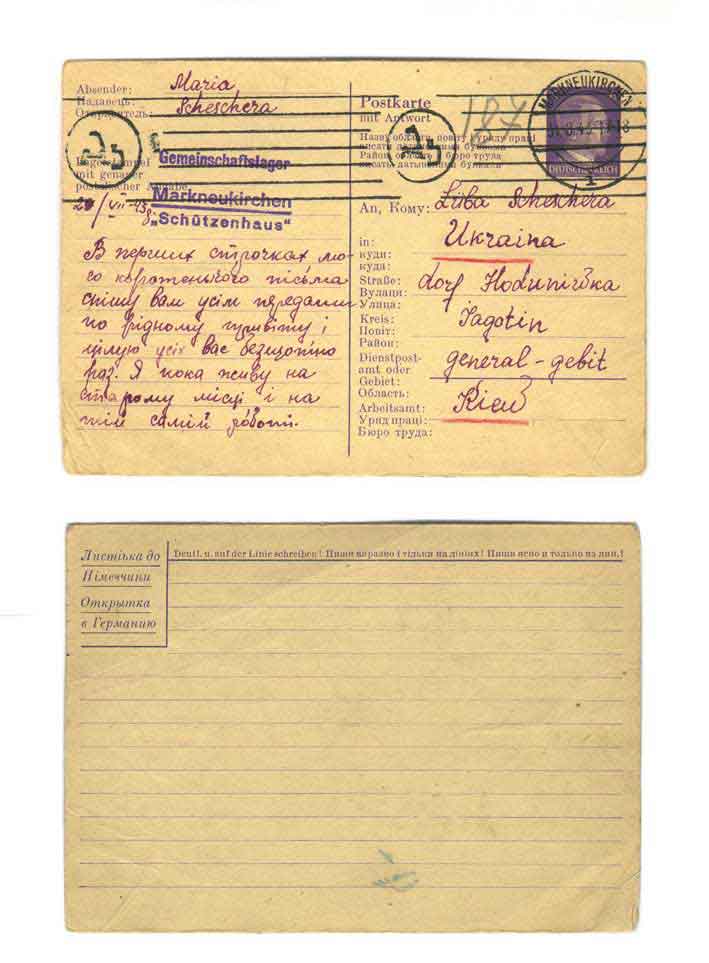 Absender: Maria
Надавець: Scheschera
Отправитель:
Gemeinschaftslager
mit genauer
postalischer Angabe
Markneukirchen
„Schützenhaus"
В перших строчках мо-
его коротенького письма
спішу вам усім передати
по рідному привіту і
цілую усіх вас безщотно
раз. Я пока живу на
старому місці і на
тій самій роботі.
Postkarte
mit Antwort
107
Назву області, повіту і уряду праці
писати латынськими буквами
Район, область и бюро труда
писать латынскими буквами
MARKNEUKIRCHEN
1
DEUTSCHES REICH
An, Кому: Liiba Scheschera
in: Ukraina
куди:
куда:
Straße: dorf Hoduniwka
Вулиця:
Улица:
Kreis: Jagotin
Повіт:
Район:
Dienstpost-
amt oder general-gebit
Gebiet:
Область:
Arbeitsamt: Kiew
Уряд праці:
Бюро труда:
Листівка до
Німеччини
Открытка
в Германию
Deutl. u. auf der Linie schreiben! Пиши виразно і тільки на лініях! Пиши ясно и только на лин.!